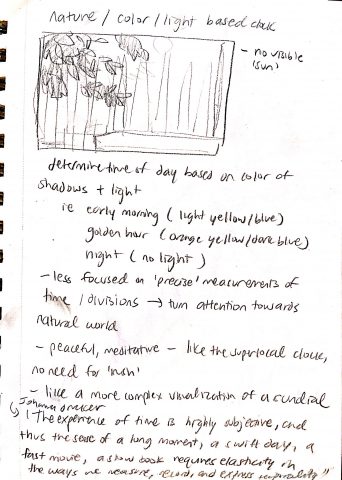 nature / color / light based clock
- no visible
'sun'
determine time of day based on color of
shadows + light
ie early morning ( light yellow/blue)
golden hour ( orange yellow/dark blue)
night ( no light )
- less focused on 'precise' measurements of
time / divisions → turn attention towards
natural world
- peaceful, meditative - like the superlocal clock,
no need for 'rush'
- like a more complex visualization of a sundial
Johanna Drucker
"The experience of time is highly subjective, and
thus the sense of a long moment, a swift day, a
fast movie, a slow book requires elasticity in
the ways we measure, record, and express temporality"